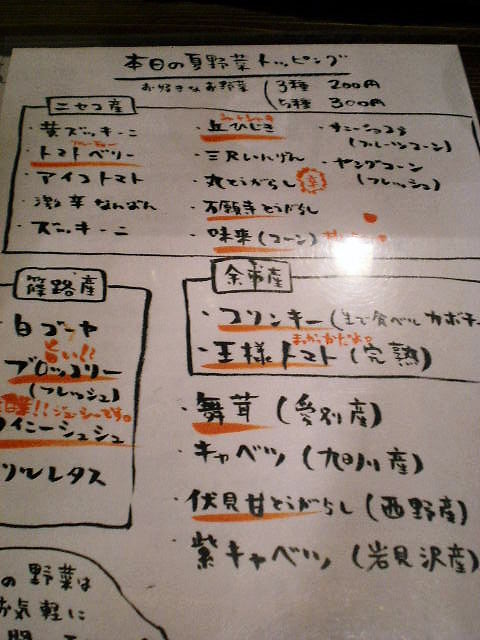 本日の夏野菜トッピング
お好きなお野菜
3種 200円
5種 300円
ニセコ産
・黄ズッキーニ
・トマトベリー
・アイコトマト
・激辛なんばん
・ズッキーニ
・丘ひじき
・三尺いんげん
・丸とうがらし 辛
・万願寺とうがらし
・味来(コーン)
(プレーツコーン)
・ヤングコーン
(フレッシュ)
篠路産
白ゴーヤ
旨い!!
ブロッコリー
(フレッシュ)
!!ジューシーです。
イニーシュシュ
ソルレタス
余市産
・コリンキー(生で食べルカボチ
まっかっかだぁ。
・王様トマト(完熟)
・舞茸(愛別産)
・キャベツ(旭川産)
・伏見甘とうがらし(西野産)
・紫キャベツ(岩見沢産)
の野菜は
お気軽に